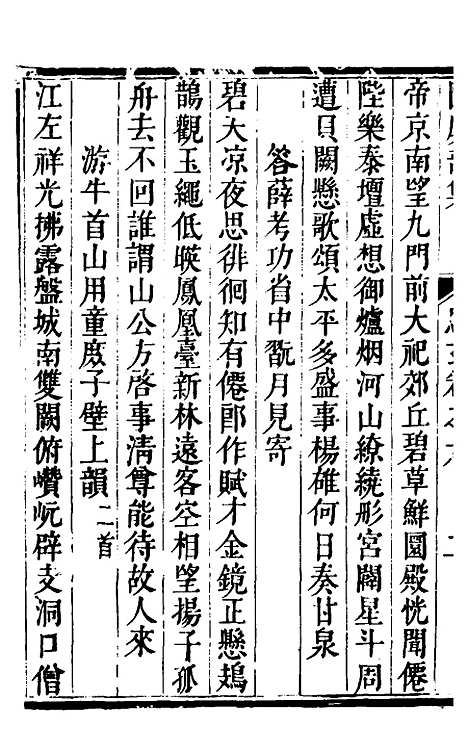 帝京南望九門前大祀郊丘碧草鮮圜殿恍聞僊
陛樂泰壇虛想御爐烟河山繚繞形宮闕星斗周
遭貝闕懸歌頌太平多盛事楊雄何日奏甘泉
答薛考功省中翫月見寄
碧天凉夜思徘徊知有僊郎作賦才金鏡正懸鳷
鵲觀玉繩低暎鳳凰臺新林遠客空相望揚子孤
舟去不回誰謂山公方啓事清尊能待故人來
游牛首山用童庻子壁上韻二首
江左祥光拂露盤城南雙闕俯巑岏辟支洞口僧